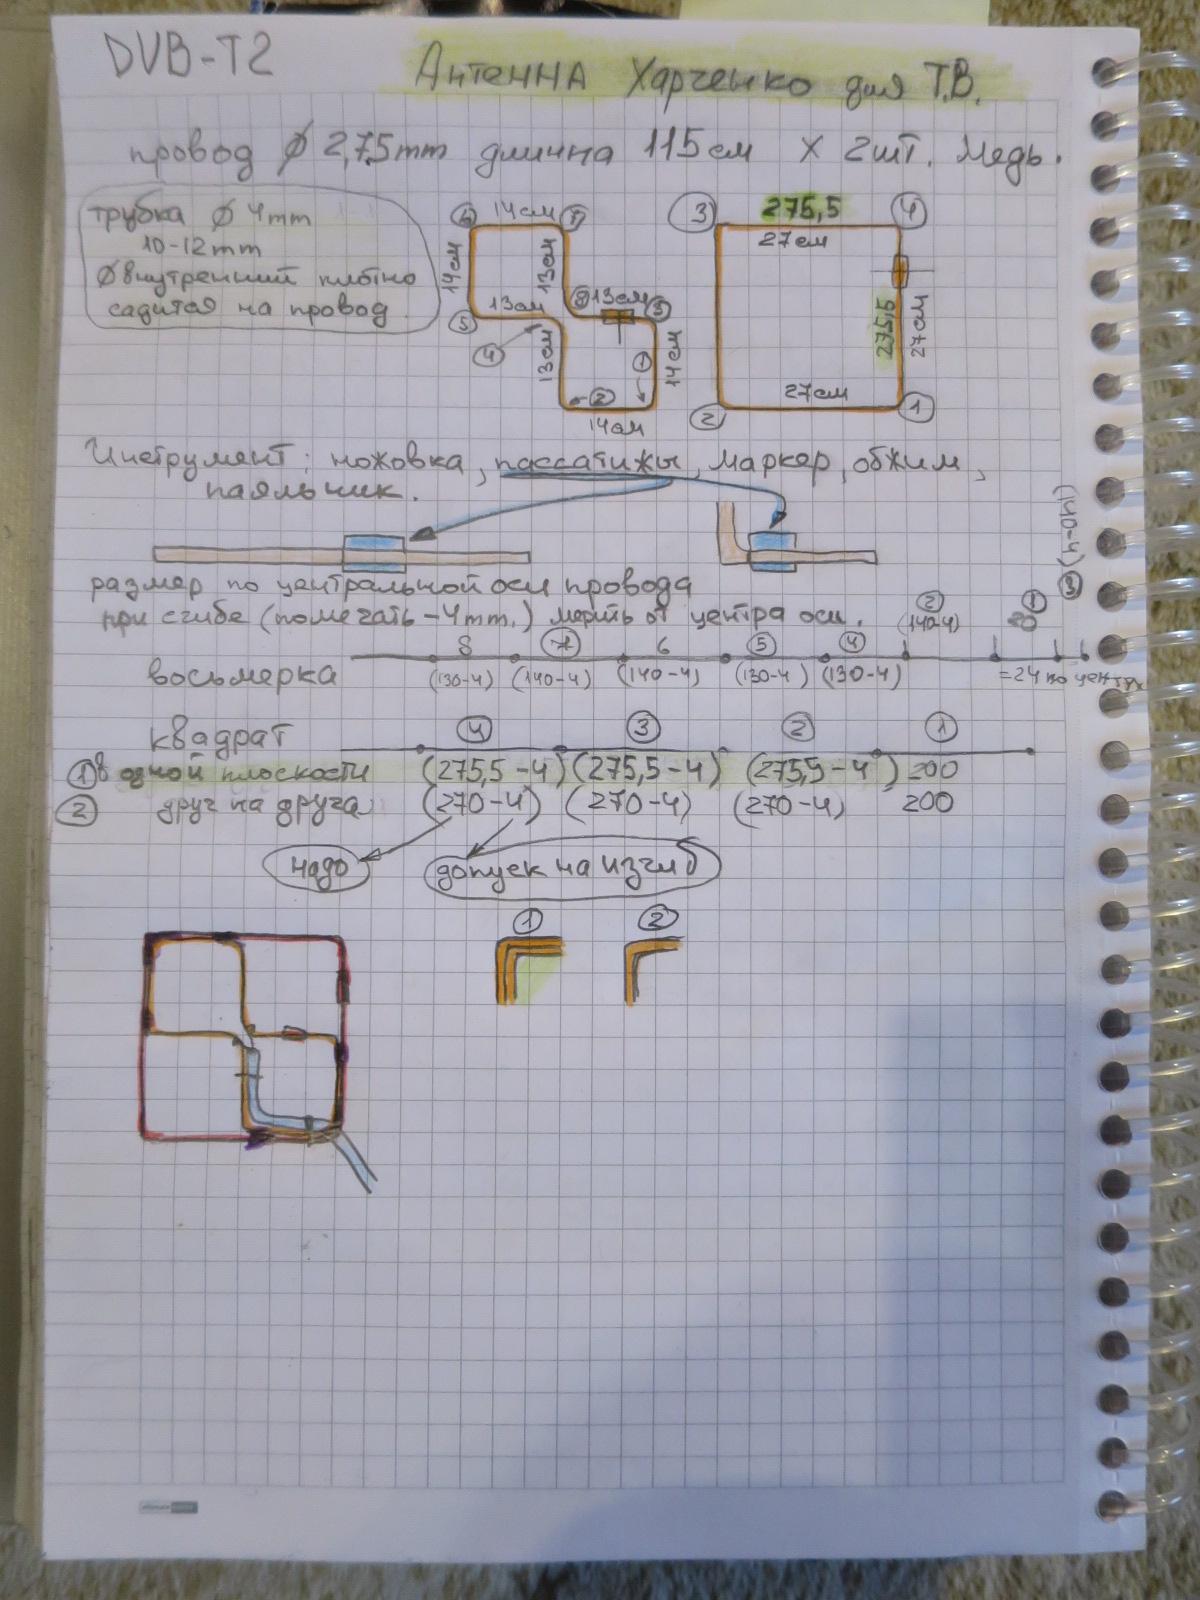 DVB-T2
Антенна Харченко для Т.В.
провод ⌀ 2,75mm длинна 115см x 2шт. Медь.
трубка ⌀ 4mm
10-12mm
⌀ внутренний плотно
садится на провод.
6 14см 7
14см 13см
13см 8 13см 3
5
4
13см 1 14см
2
14см
3 275,5 4
27см
275,5 27см
27см
2 1
Инструмент: ножовка, пассатижы, маркер, обжим,
паяльник.
размер по центральной оси провода
при сгибе (помечать -4mm.) мерить от центра оси.
8 7 6 5 4 2 1 3
восьмерка (130-4) (140-4) (140-4) (130-4) (130-4) (140-4) (140-4)
=24 по центру
4 3 2 1
квадрат
1 в одной плоскости (275,5-4) (275,5-4) (275,5-4) 200
2 друг на друга (270-4) (270-4) (270-4) 200
надо допуск на изгиб
1 2